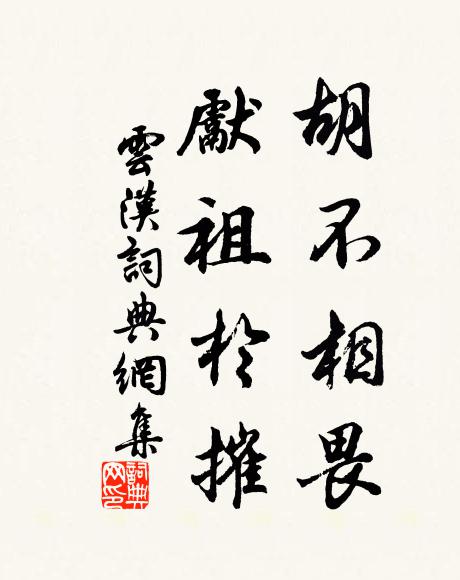 胡不相畏
獻祖於摧
雲漢詞典網集
詞典
网印